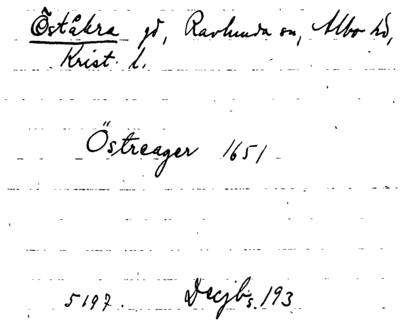 Öståkra gd, Ravlunda sn, Albo hd,
Krist. l.
Östreager 1651
5197. Decjb s. 193